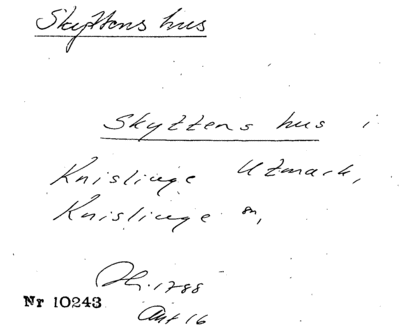 Skyttens hus
Skyttens hus i
Knislinge Utmark,
Knislinge sn,
1788
Nr 10243
Akt 16